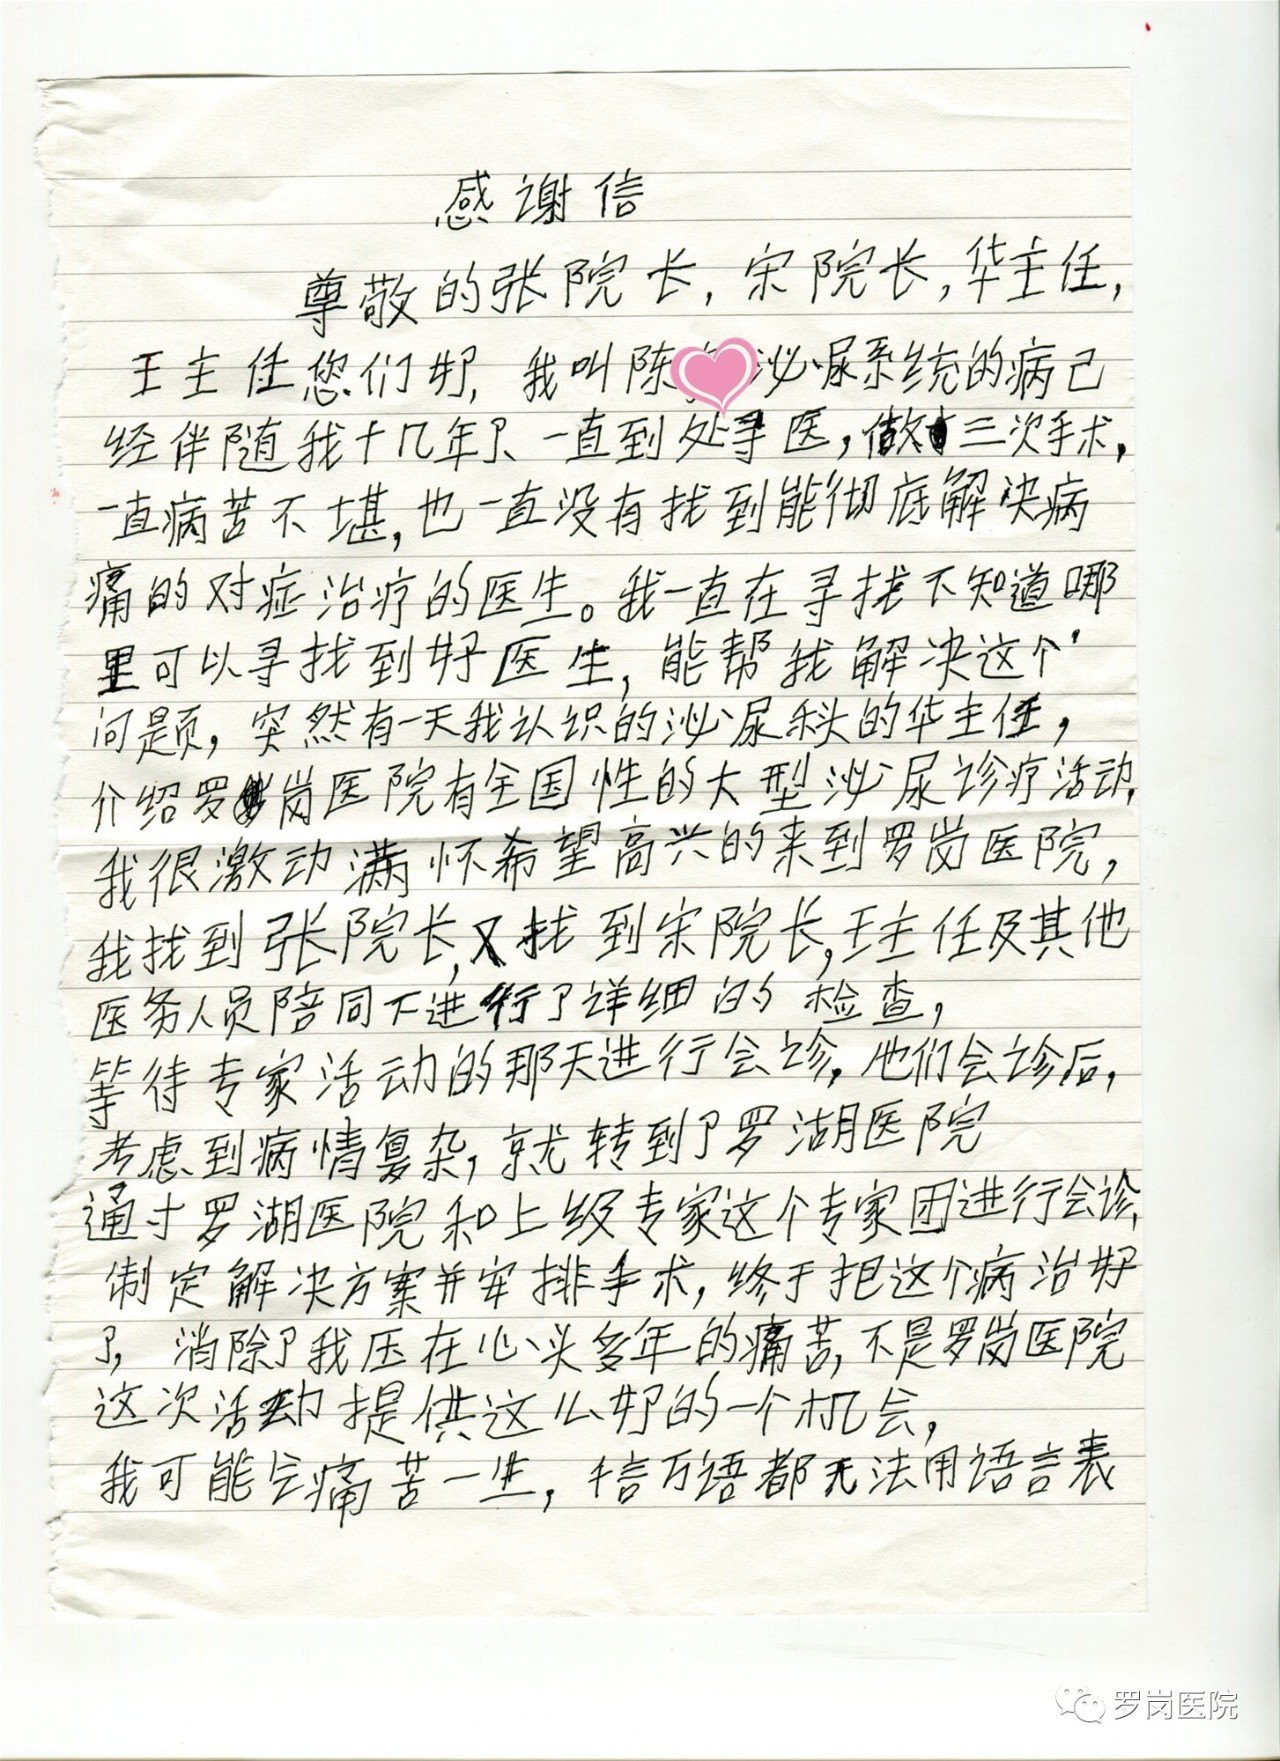 感谢信
尊敬的张院长,宋院长,华主任,
王主任您们好,我叫陈 泌尿系统的病已
经伴随我十几年了、一直到处寻医,做了三次手术,
一直病苦不堪,也一直没有找到能彻底解决病
痛的对症治疗的医生。我一直在寻找不知道哪
里可以寻找到好医生,能帮我解决这个
问题,突然有一天我认识的泌尿科的华主任,
介绍罗岗医院有全国性的大型泌尿诊疗活动,
我很激动满怀希望高兴的来到罗岗医院,
我找到张院长,又找到宋院长,王主任及其他
医务人员陪同下进行了详细的检查,
等待专家活动的那天进行会诊,他们会诊后,
考虑到病情复杂,就转到了罗湖医院
通过罗湖医院和上级专家这个专家团进行会诊,
制定解决方案并安排手术,终于把这个病治好
了,消除了我压在心头多年的痛苦,不是罗岗医院
这次活动提供这么好的一个机会,
我可能会痛苦一生,千言万语都无法用语言表
罗岗医院